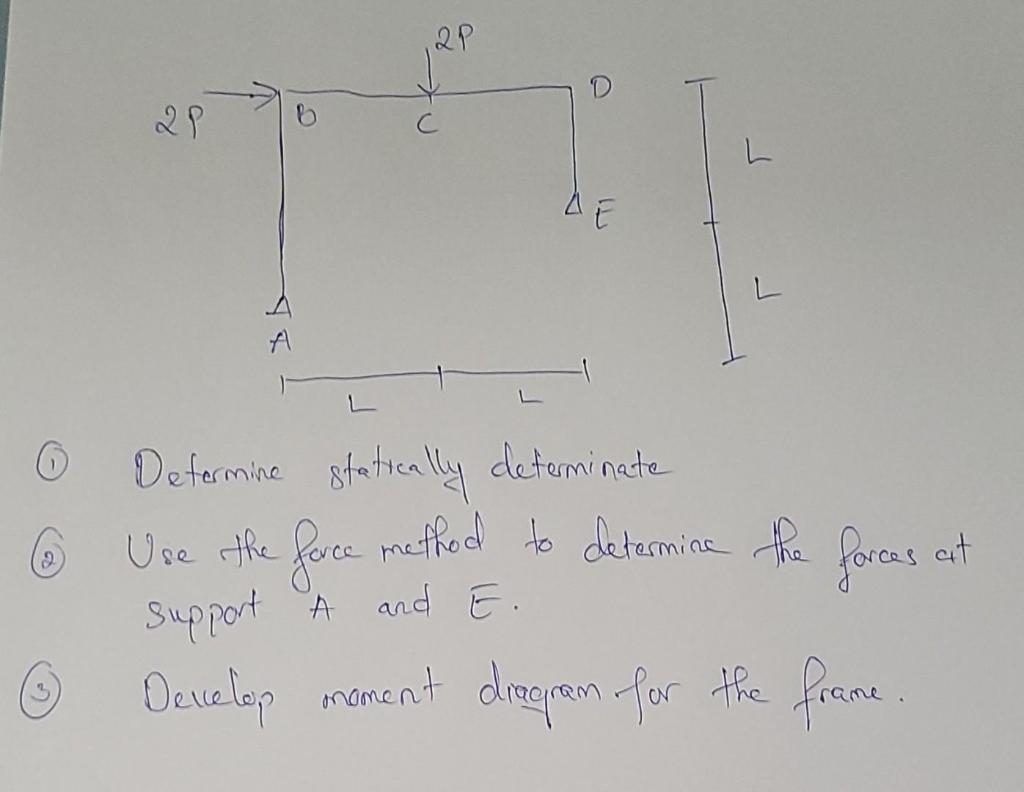 2P
2P
B
C
D
L
E
L
A
L
L
① Determine statically determinate
② Use the force method to determine the forces at
support A and E.
③ Develop moment diagram for the frame.